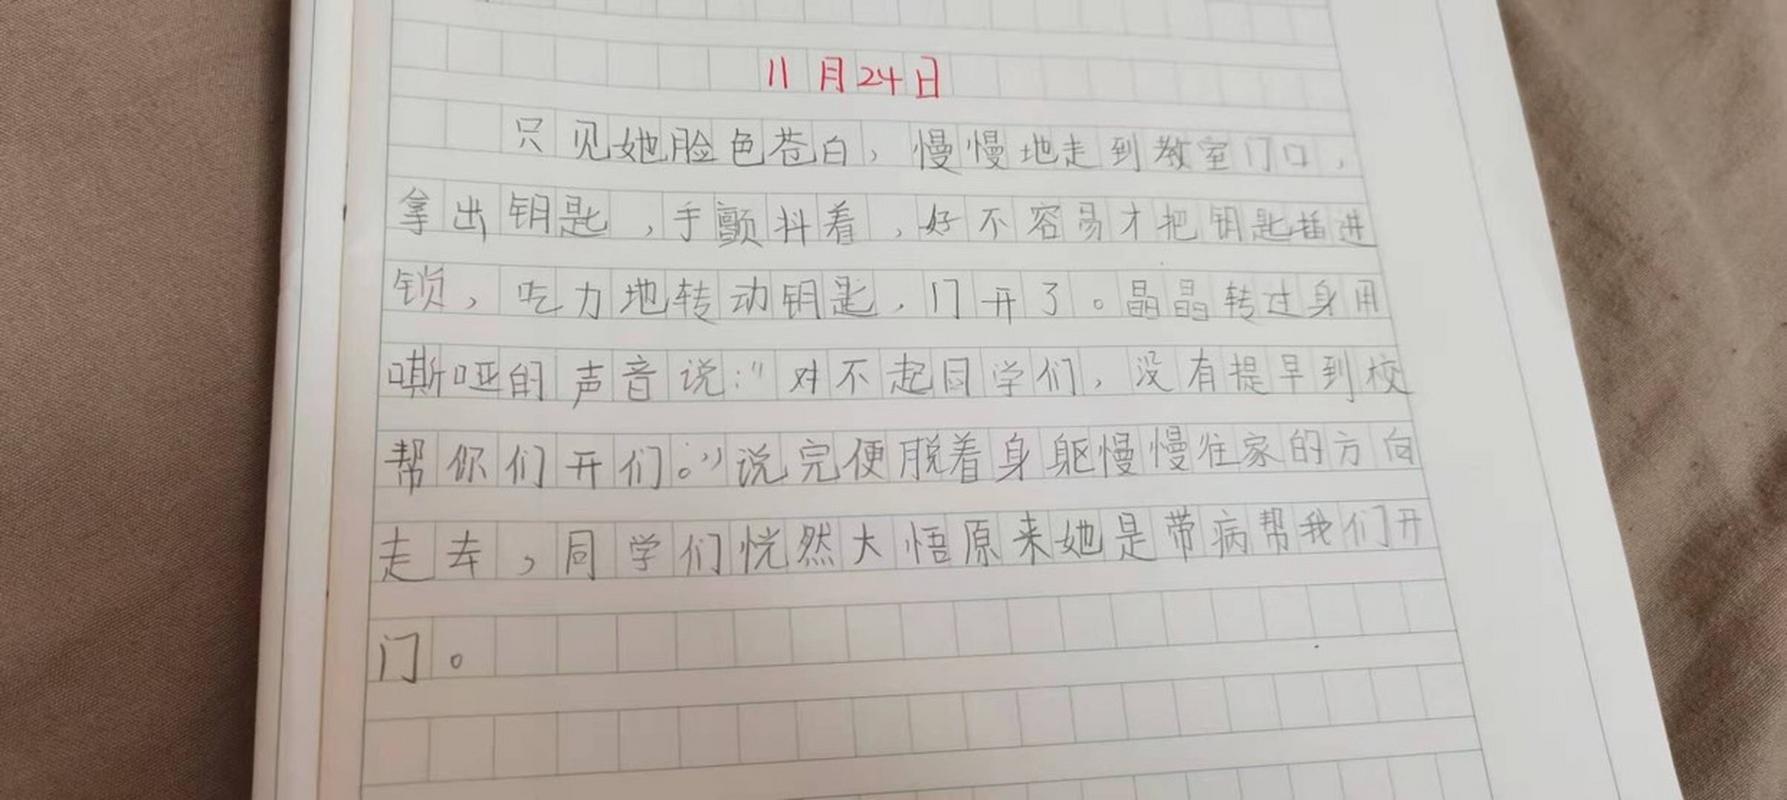 11月24日
只见她脸色苍白，慢慢地走到教室门口，
拿出钥匙，手颤抖着，好不容易才把钥匙插进
锁，吃力地转动钥匙，门开了。晶晶转过身用
嘶哑的声音说:“对不起同学们，没有提早到校
帮你们开们。”说完便脱着身躯慢慢往家的方向
走去，同学们恍然大悟原来她是带病帮我们开
门。